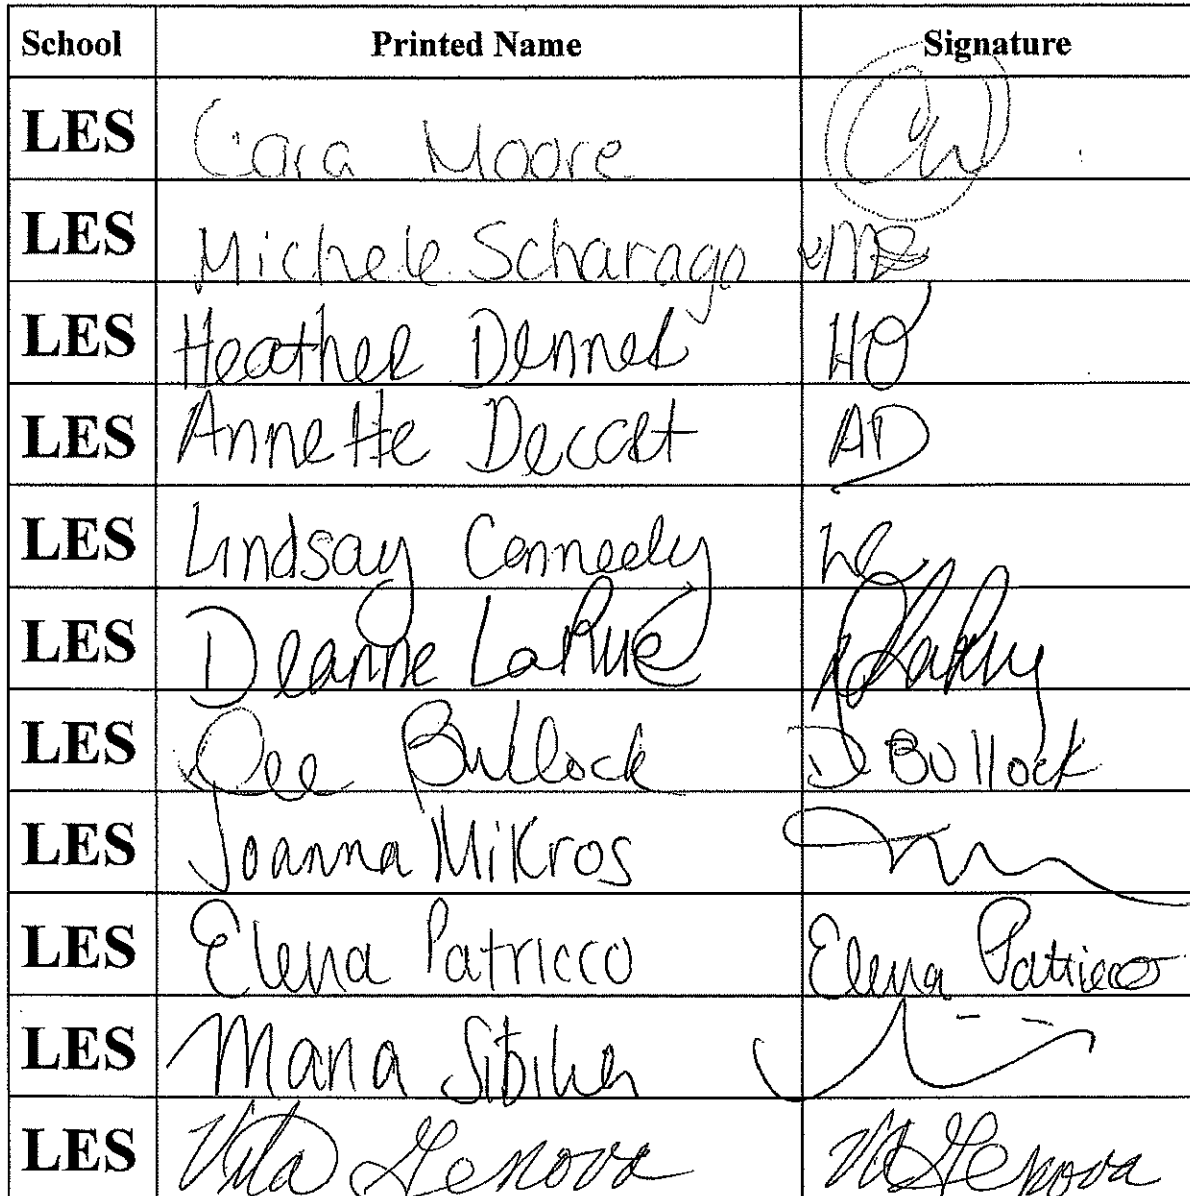 School Printed Name Signature
LES Cara Moore
LES Michele Scharago MS
LES Heather Denner HD
LES Annette Deccet AD
LES Lindsay Conneely LC
LES Deanne LaRue DLaRue
LES Dee Bullock D Bullock
LES Joanna Mikros
LES Elena Patricco Elena Patricco
LES Maria
LES Vita Genova V Genova